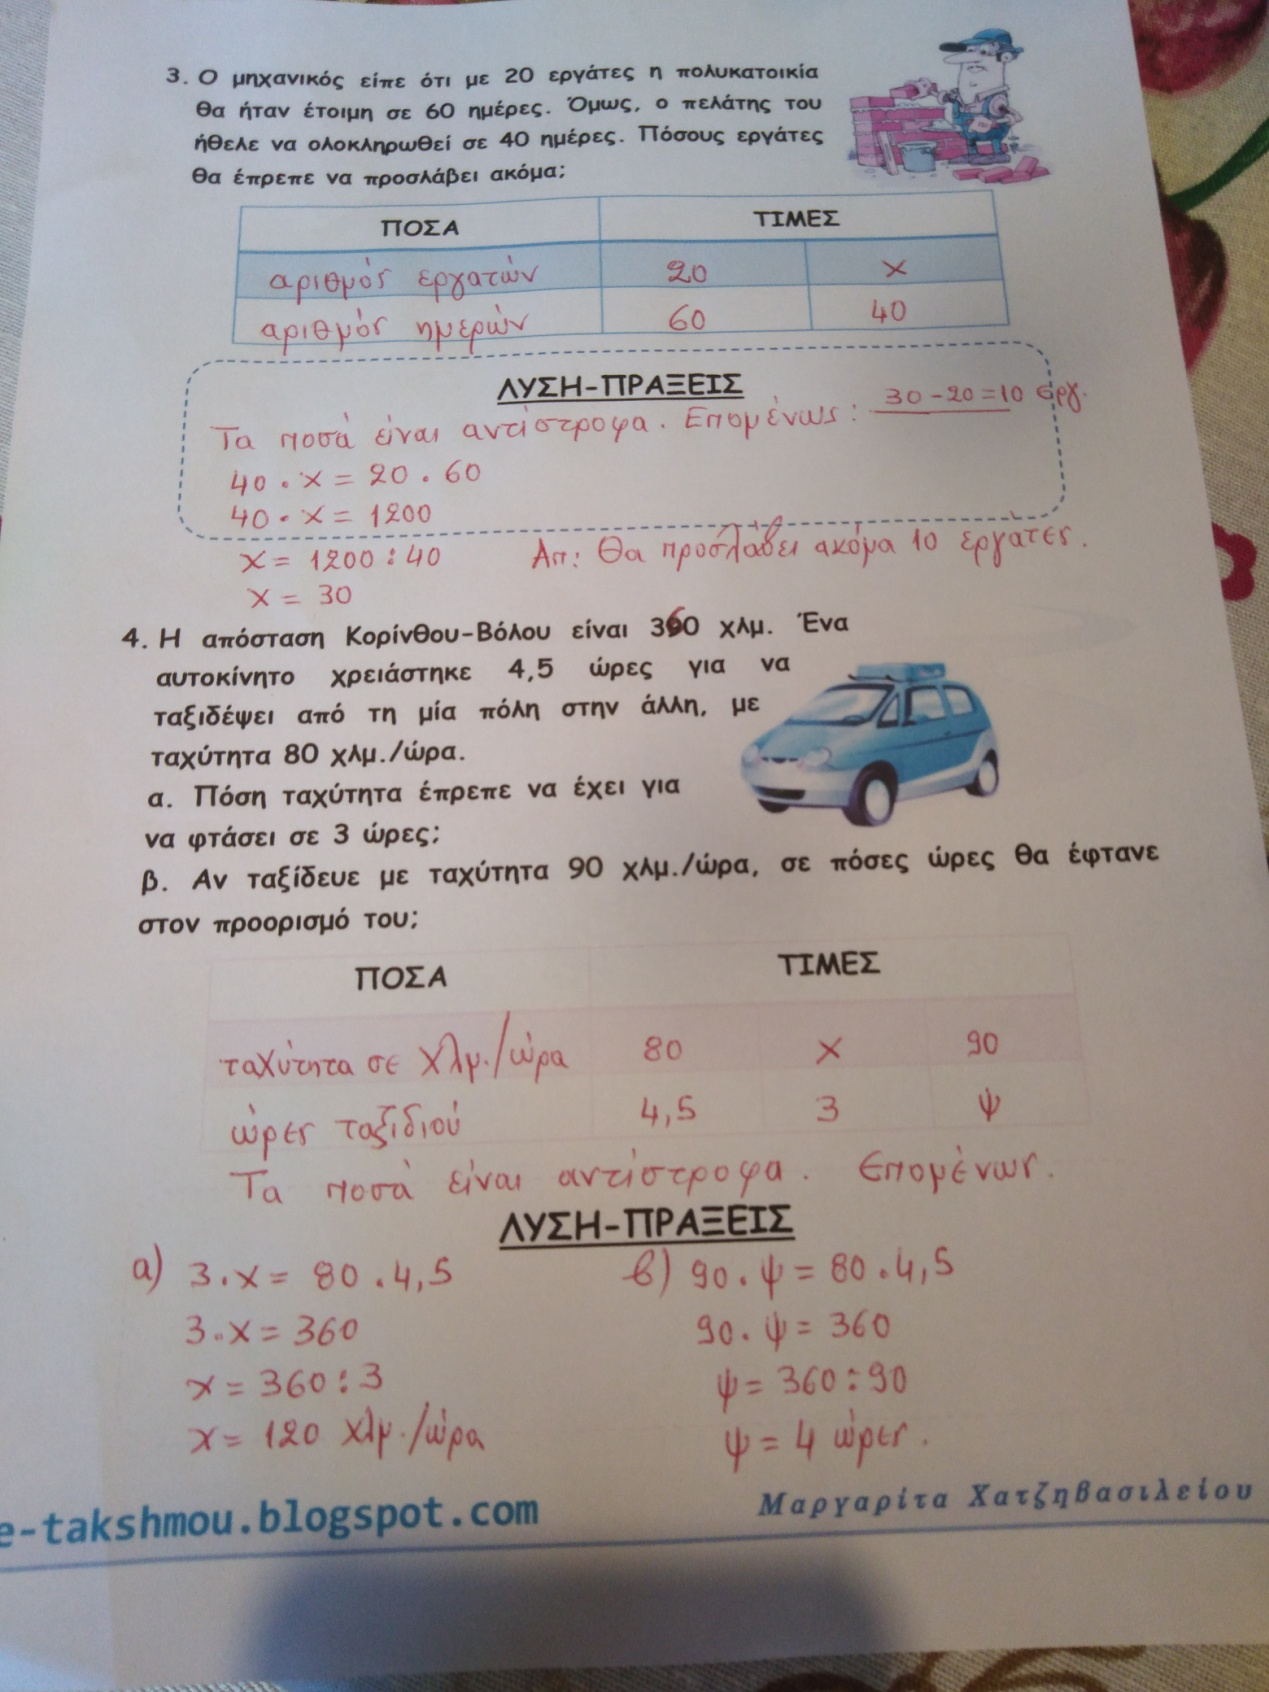 3. Ο μηχανικός είπε ότι με 20 εργάτες η πολυκατοικία
θα ήταν έτοιμη σε 60 ημέρες. Όμως, ο πελάτης του
ήθελε να ολοκληρωθεί σε 40 ημέρες. Πόσους εργάτες
θα έπρεπε να προσλάβει ακόμα;
ΠΟΣΑ ΤΙΜΕΣ
αριθμός εργατών 20 x
αριθμός ημερών 60 40
ΛΥΣΗ-ΠΡΑΞΕΙΣ
Τα ποσά είναι αντίστροφα. Επομένως: 30-20=10 εργ.
40 . x = 20 . 60
40 . x = 1200
x = 1200 : 40 Απ: Θα προσλάβει ακόμα 10 εργάτες.
x = 30
4. Η απόσταση Κορίνθου-Βόλου είναι 360 χλμ. Ένα
αυτοκίνητο χρειάστηκε 4,5 ώρες για να
ταξιδέψει από τη μία πόλη στην άλλη, με
ταχύτητα 80 χλμ./ώρα.
α. Πόση ταχύτητα έπρεπε να έχει για
να φτάσει σε 3 ώρες;
β. Αν ταξίδευε με ταχύτητα 90 χλμ./ώρα, σε πόσες ώρες θα έφτανε
στον προορισμό του;
ΠΟΣΑ ΤΙΜΕΣ
ταχύτητα σε χλμ./ώρα 80 x 90
ώρες ταξιδιού 4,5 3 ψ
Τα ποσά είναι αντίστροφα. Επομένως.
ΛΥΣΗ-ΠΡΑΞΕΙΣ
α) 3.x = 80 .4,5 β) 90. ψ = 80 .4,5
3.x = 360 90. ψ = 360
x = 360 : 3 ψ = 360 : 90
x = 120 χλμ./ώρα ψ = 4 ώρες.
e-takshmou.blogspot.com Μαργαρίτα Χατζηβασιλείου